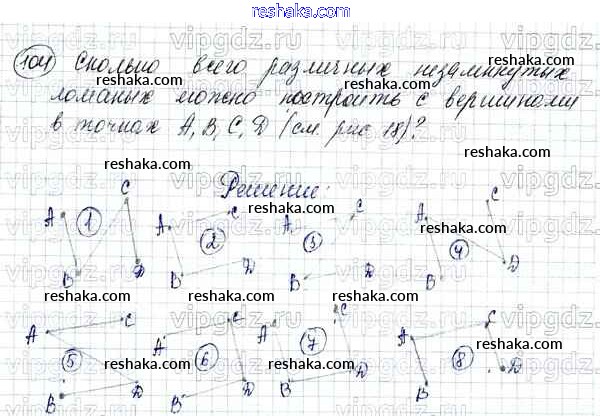 reshaka.com
104 Сколько всего различных незамкнутых
ломаных можно построить с вершинами
в точках A, B, C, D (см. рис 18)?
reshaka.com reshaka.com reshaka.com
Решение:
reshaka.com
A C 1 B D
A C 2 B D
A C 3 B D
A C 4 B D
reshaka.com reshaka.com reshaka.com
A C 5 B D
A C 6 B D
A C 7 B D
A C 8 B D
reshaka.com reshaka.com reshaka.com